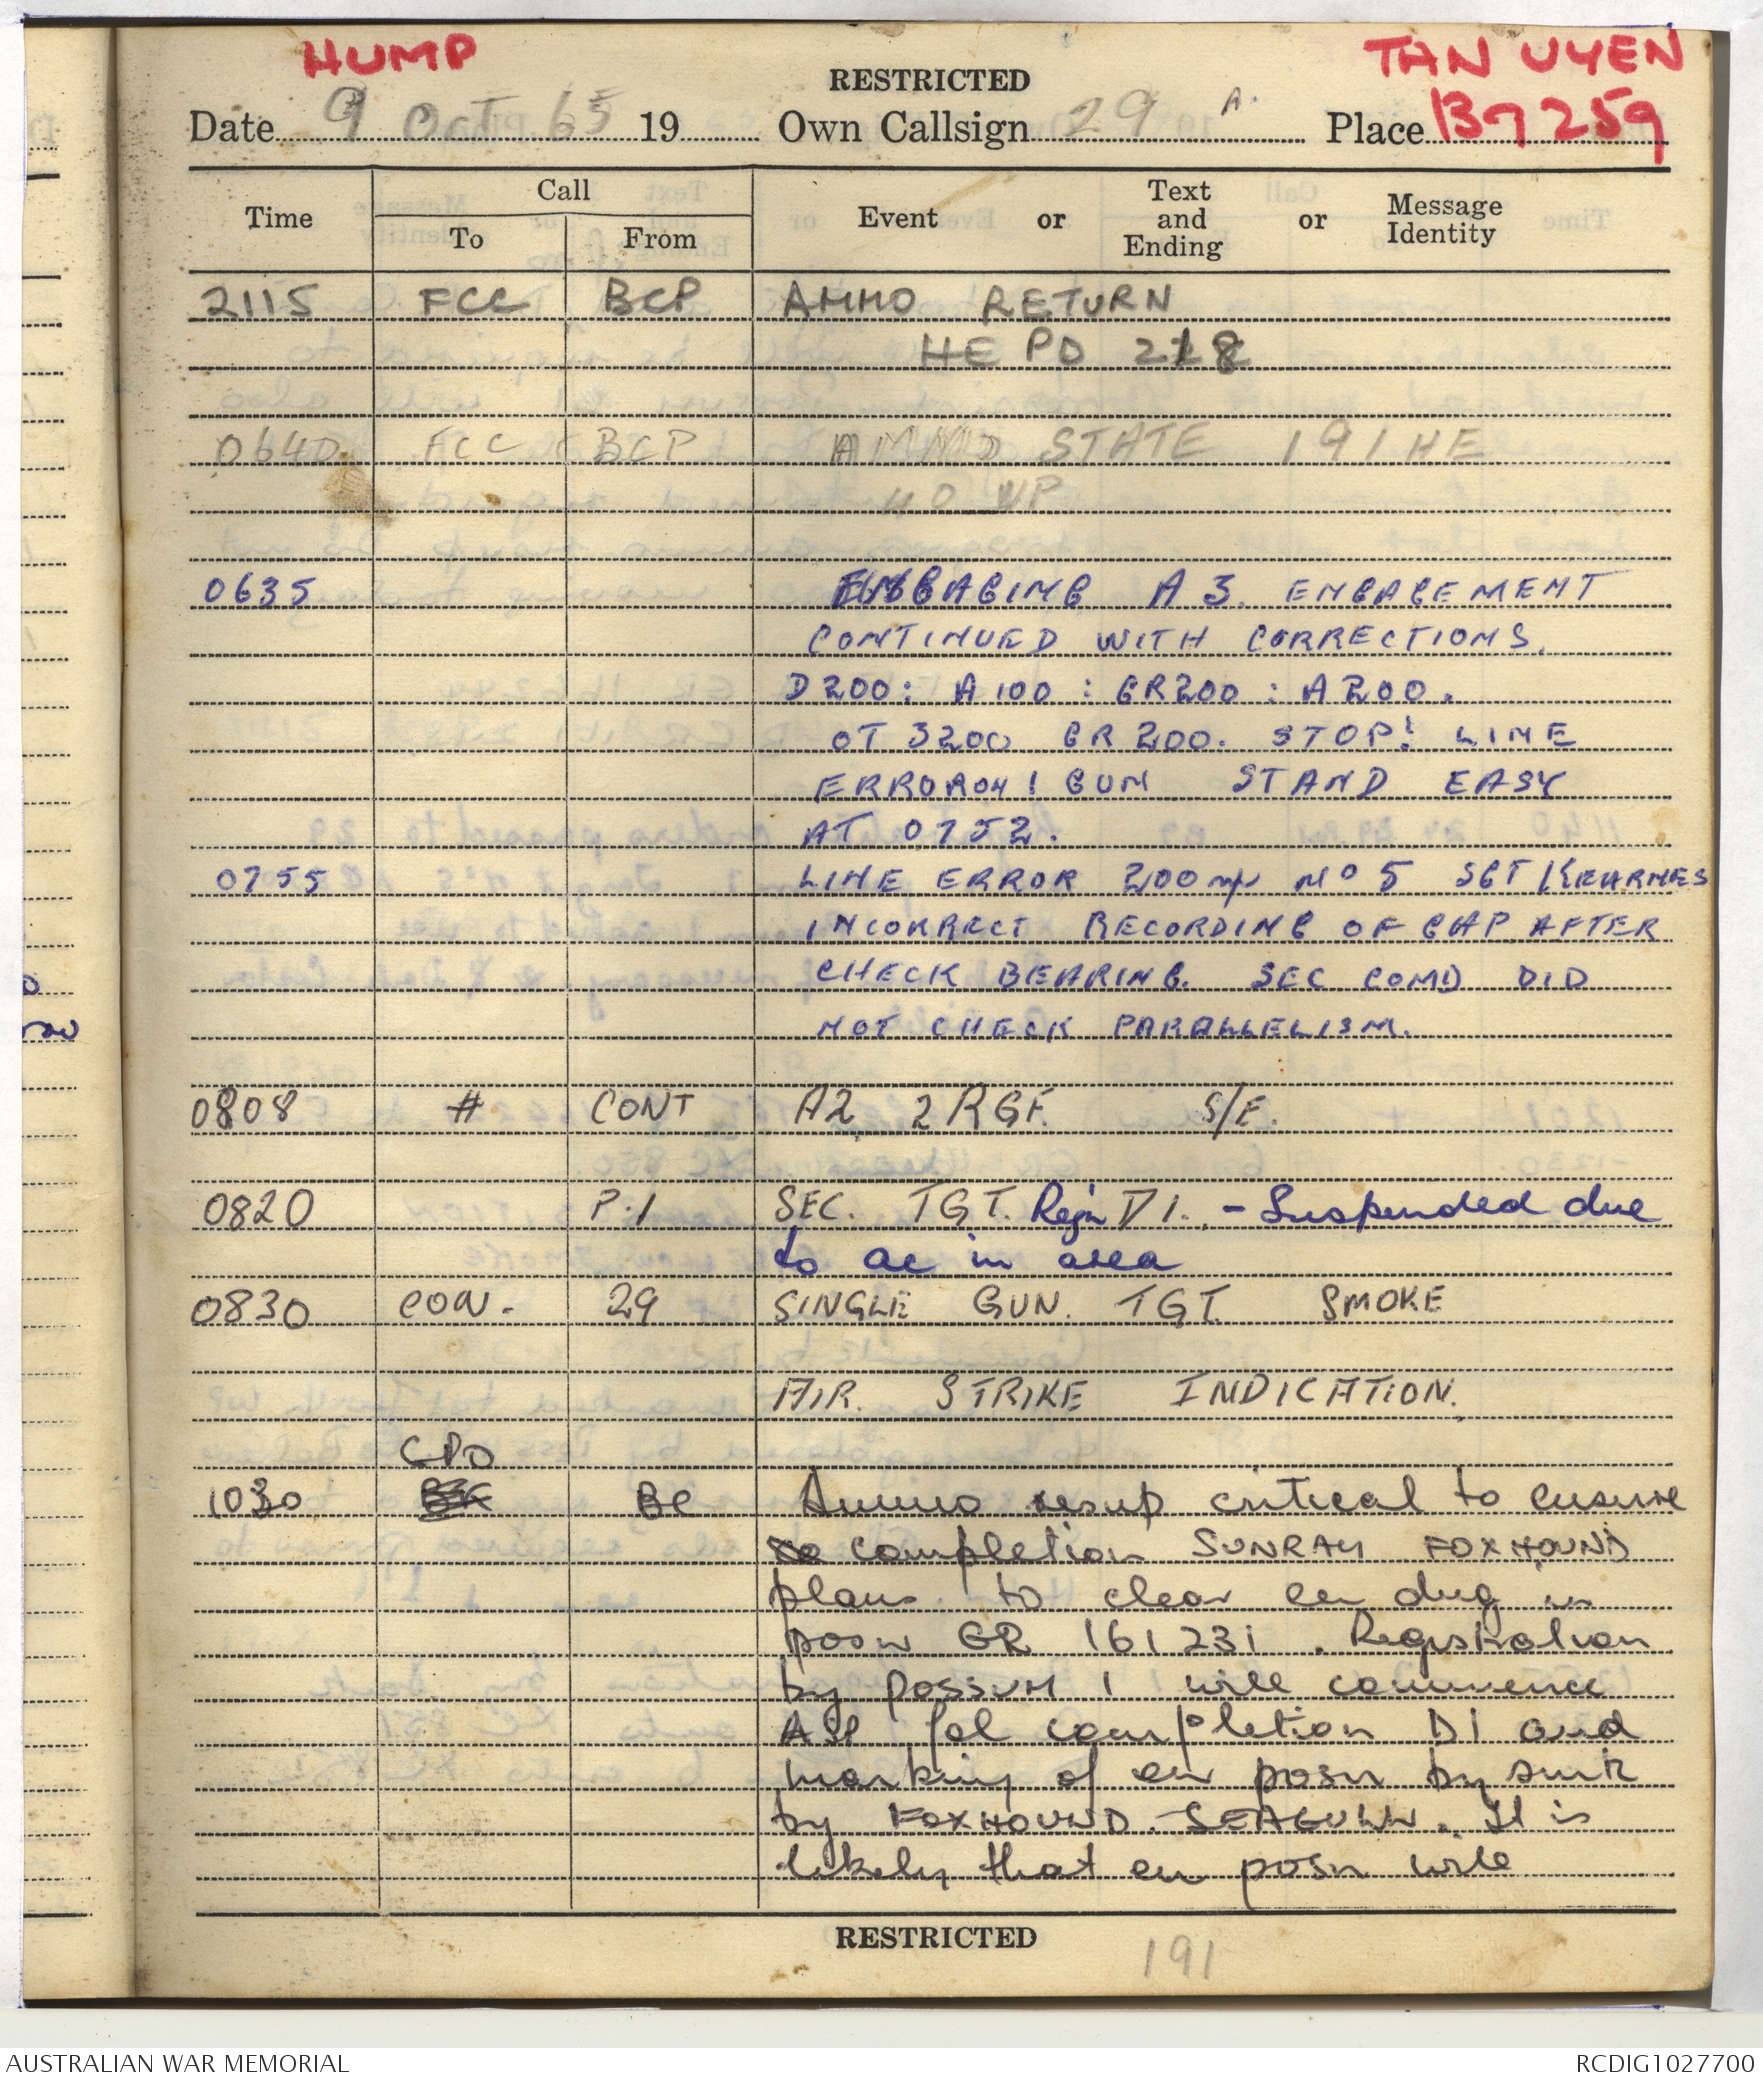 HUMP
TAN UYEN
RESTRICTED
Date 9 Oct 65 19 Own Callsign 29 A. Place 137259
Time Call To From Event or Text and Ending or Message Identity
2115 FCC BCP AMMO RETURN
HE PD 218
0640 FCC BCP AMMO STATE 191 HE
40 WP
0635 ENGAGING A3. ENGAGEMENT
CONTINUED WITH CORRECTIONS.
D200: A100 : GR200 : A200.
OT 3200 GR 200. STOP! LINE
ERROR ! GUN STAND EASY
AT 0752.
0755 LINE ERROR 200 No 5 SGT KEARNES
INCORRECT RECORDING OF GAP AFTER
CHECK BEARING. SEC COMD DID
NOT CHECK PARALLELISM.
0808 # CONT A2 2 RGF. S/E.
0820 P.1 SEC. TGT. Regn D1. - Suspended due
to ac in area
0830 CON. 29 SINGLE GUN. TGT. SMOKE
AIR. STRIKE INDICATION.
CPO
1030 BC Ammo resup critical to ensure
completion SUNRAY FOXHOUND
plans to clear en dug in
posn GR 161231. Registration
by POSSUM 1 will commence
ASP fol completion D1 and
marking of en posn by smk
by FOXHOUND - SEAGULL. It is
likely that en posn will
RESTRICTED
191
AUSTRALIAN WAR MEMORIAL
RCDIG1027700